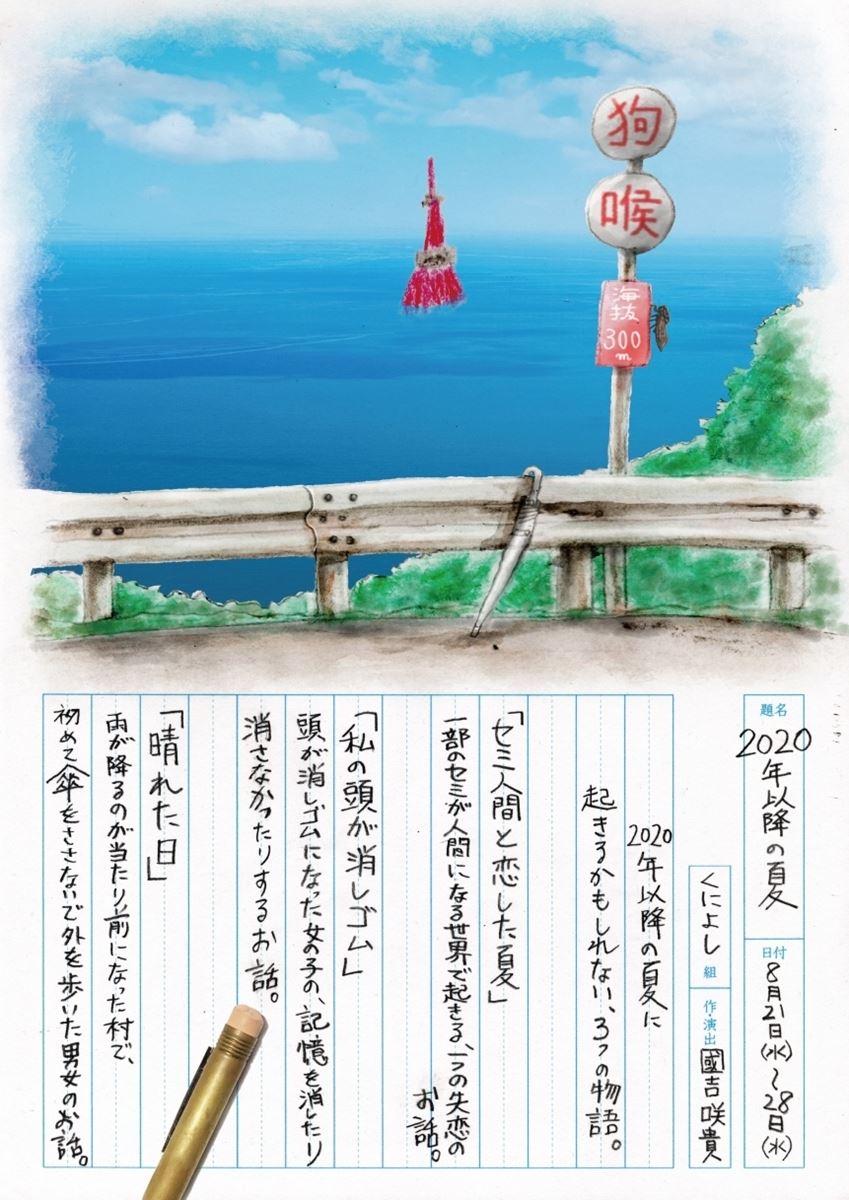 狗
喉
海抜
300
m
題名
2020年以降の夏
日付
8月21日(水)～28日(水)
くによし 組
作・演出 國吉咲貴
2020年以降の夏に
起きるかもしれない、3つの物語。
「セミ人間と恋した夏」
一部のセミが人間になる世界で起きる、一つの失恋の
お話。
「私の頭が消しゴム」
頭が消しゴムになった女の子の、記憶を消したり
消さなかったりするお話。
「晴れた日」
雨が降るのが当たり前になった村で、
初めて傘をささないで外を歩いた男女のお話。